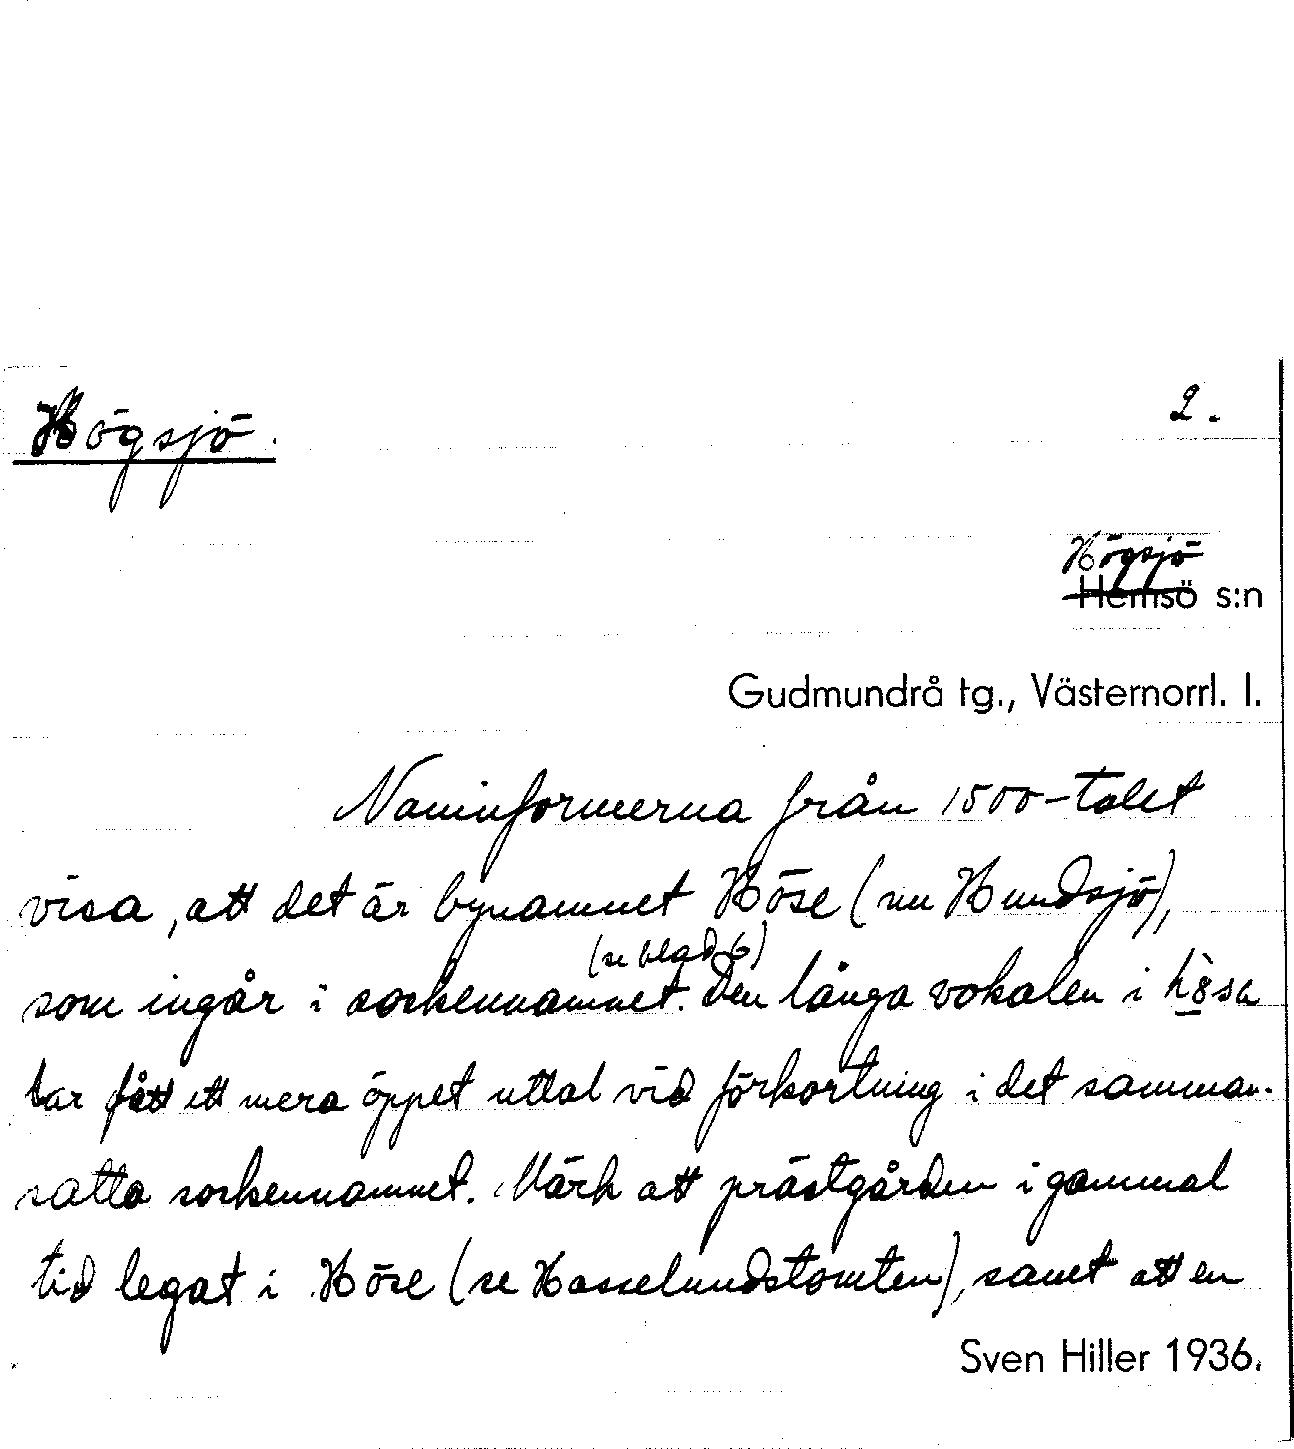 Högsjö. 2.
Högsjö
Hemsö s:n
Gudmundrå tg., Västernorrl. l.
Namnformerna från 1500-talet
visa, att det är bynamnet Höse (nu Hundsjö),
(se blad 6)
som ingår i sockennamnet. Den långa vokalen i
har fått ett mera öppet uttal vid förkortning i det samman-
satta sockennamnet. Märk att prästgården i gammal
tid legat i Höse (se Hasselundstomten), samt att en
Sven Hiller 1936.